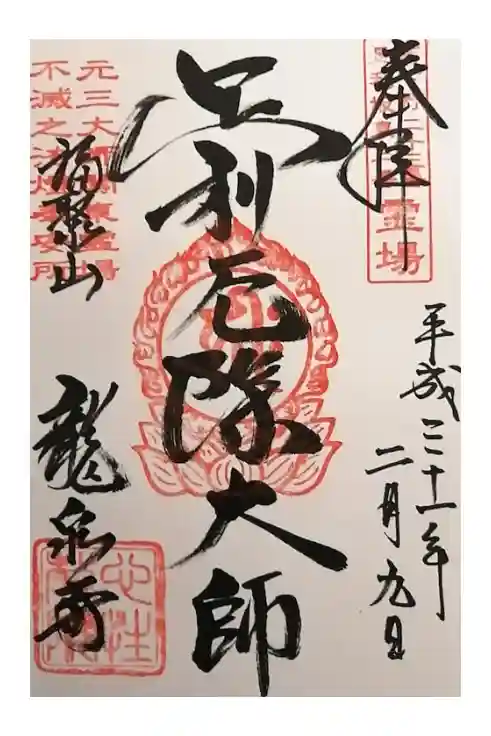 奉拝
平成三十一年
二月九日
足利厄除大師
福聚山
龍泉寺
元三大師
不滅之法灯奉安所
霊場